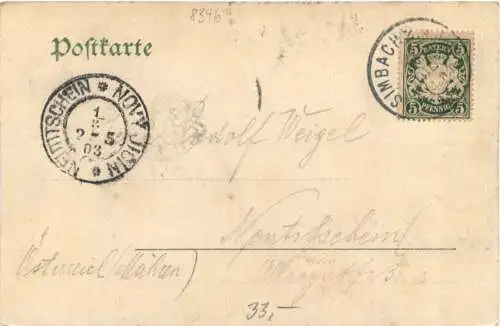 8346
Postkarte
SIMBACH
BAYERN
5 5
PFENNIG
NEUTITSCHEIN * NOVÝ JIČÍN *
1
2-5
03
Adolf Weigel
Neutitschein
Österreich (Mähren)
33,-